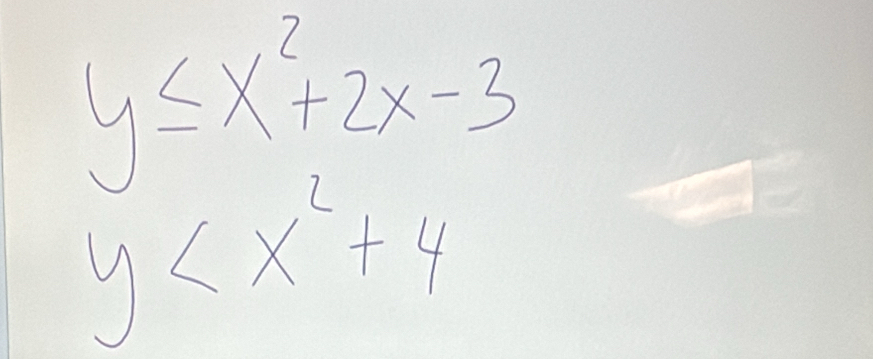 y ≤ x² + 2x - 3
y < x² + 4